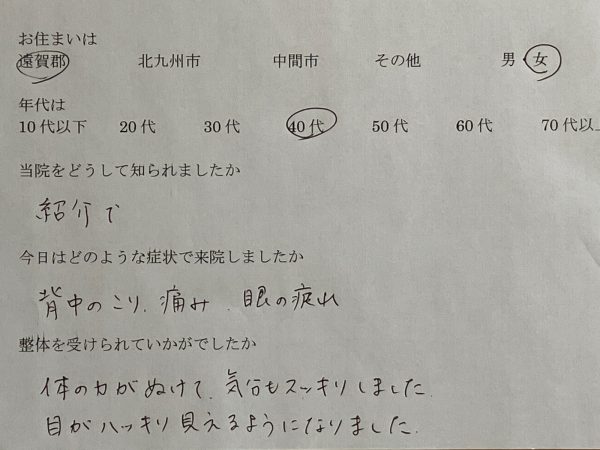 お住まいは
遠賀郡 北九州市 中間市 その他 男・女
年代は
10代以下 20代 30代 40代 50代 60代 70代以上
当院をどうして知られましたか
紹介で
今日はどのような症状で来院しましたか
背中のこり、痛み、眼の疲れ
整体を受けられていかがでしたか
体の力がぬけて、気分もスッキリしました。
目がハッキリ見えるようになりました。